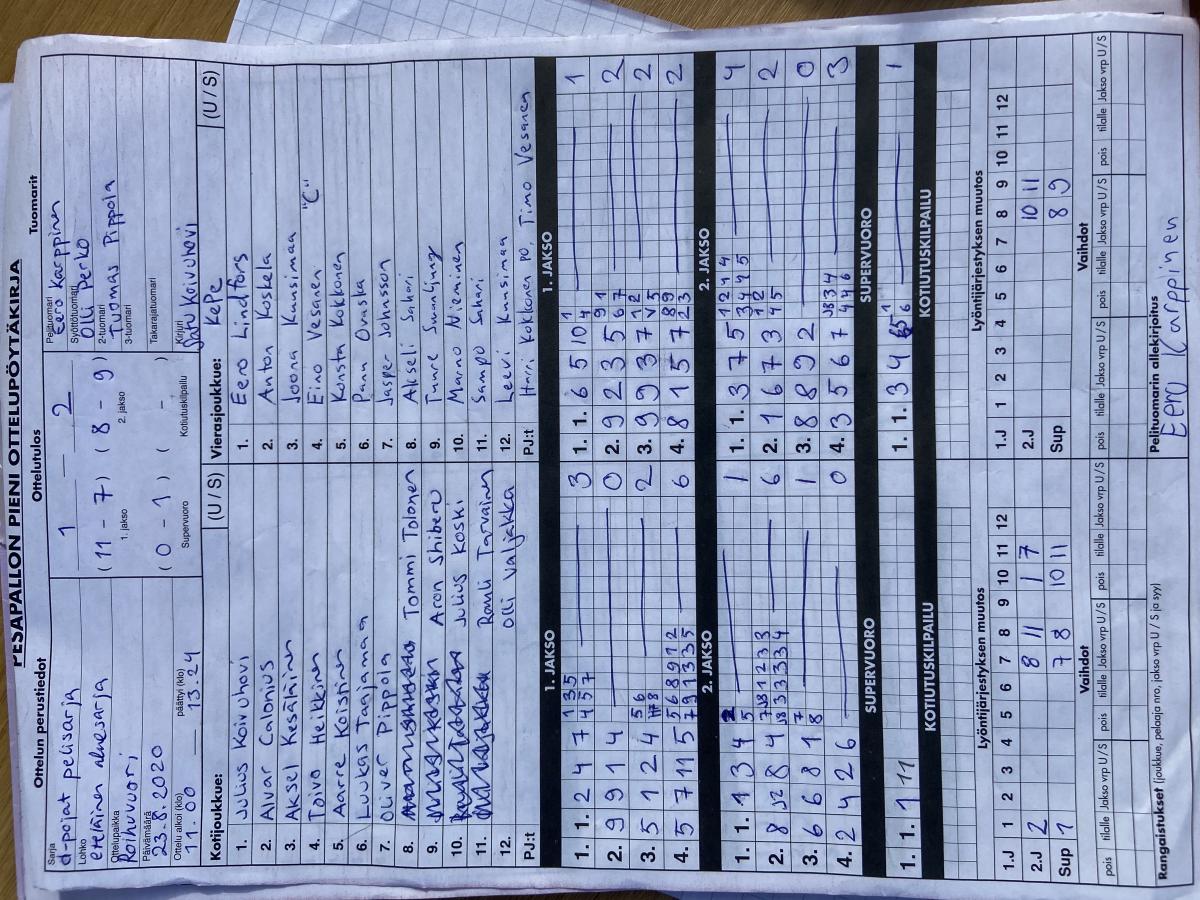 PESÄPALLON PIENI OTTELUPÖYTÄKIRJA
Ottelun perustiedot
Ottelutulos
Tuomarit
Sarja
d-pojat pelisarja
Lohko
eteläinen aluesarja
Ottelupaikka
Roihuvuori
Päivämäärä
23.8.2020
Ottelu alkoi (klo)
päättyi (klo)
11.00 13.24
1 — 2
(11 - 7) (8 - 9)
1. jakso 2. jakso
(0 - 1) ( - )
Supervuoro Kotiutuskilpailu
Pelituomari
Eero Karppinen
Syöttötuomari
Olli Perko
2-tuomari
Tuomas Pippola
3-tuomari
Takarajatuomari
Kirjuri
Satu Koivuhovi
Kotijoukkue: (U / S)
1. Julius Koivuhovi
2. Alvar Calonius
3. Aksel Kesäläinen
4. Toivo Heikkinen
5. Aarre Koistinen
6. Luukas Taajamaa
7. Oliver Pippola
8. Tommi Tolonen
9. Aron Shiberu
10. Julius Koski
11. Rauli Tarvainen
12. Olli Valjakka
PJ:t
Vierasjoukkue: KePe (U / S)
1. Eero Lindfors
2. Anton Koskela
3. Joona Kuusimaa
4. Eino Vesanen "C"
5. Konsta Kokkonen
6. Panu Ovaska
7. Jasper Johnsson
8. Akseli Sahari
9. Tuure Suonljung
10. Marno Nieminen
11. Sampo Sahari
12. Leevi Kuusimaa
PJ:t Harri Kokkonen PO, Timo Vesanen
1. JAKSO
1. 1. 2 4 7 3
1 3 5
4 5 7
2. 9 9 1 4 0
3. 5 1 2 4 2
4. 5 7 11 5 6
5 6 8 9 1 2
7 9 1 3 3 5
2. JAKSO
1. 1. 1 3 4 1
2. 8 J2 8 4 6
3. 6 6 8 1 1
7
8
4. 2 4 2 6 0
SUPERVUORO
1. 1. 1 11
KOTIUTUSKILPAILU
1. JAKSO
1. 1. 6 5 10 1
1
4
2. 9 2 3 5 2
9 1
6 7
3. 9 9 3 7 2
1 2
4. 8 1 5 7 2
8 9
2 3
2. JAKSO
1. 1. 3 7 5 4
1 2 1 4
3 4 4 5
2. 1 6 7 3 2
1 2
4 5
3. 8 8 9 2 0
4. 3 5 6 7 3
J8 3 4
4 4 6
SUPERVUORO
1. 1. 3 4 5 1
1
6
KOTIUTUSKILPAILU
Lyöntijärjestyksen muutos
1.J 1 2 3 4 5 6 7 8 9 10 11 12
2.J 2 8 11 1 7
Sup 1 7 8 10 11
Vaihdot
pois tilalle Jakso vrp U / S pois tilalle Jakso vrp U / S
Lyöntijärjestyksen muutos
1.J 1 2 3 4 5 6 7 8 9 10 11 12
2.J 10 11
Sup 8 9
Vaihdot
pois tilalle Jakso vrp U / S pois tilalle Jakso vrp U / S
Rangaistukset (joukkue, pelaaja nro, jakso vrp U / S ja syy)
Pelituomarin allekirjoitus
Eero Karppinen